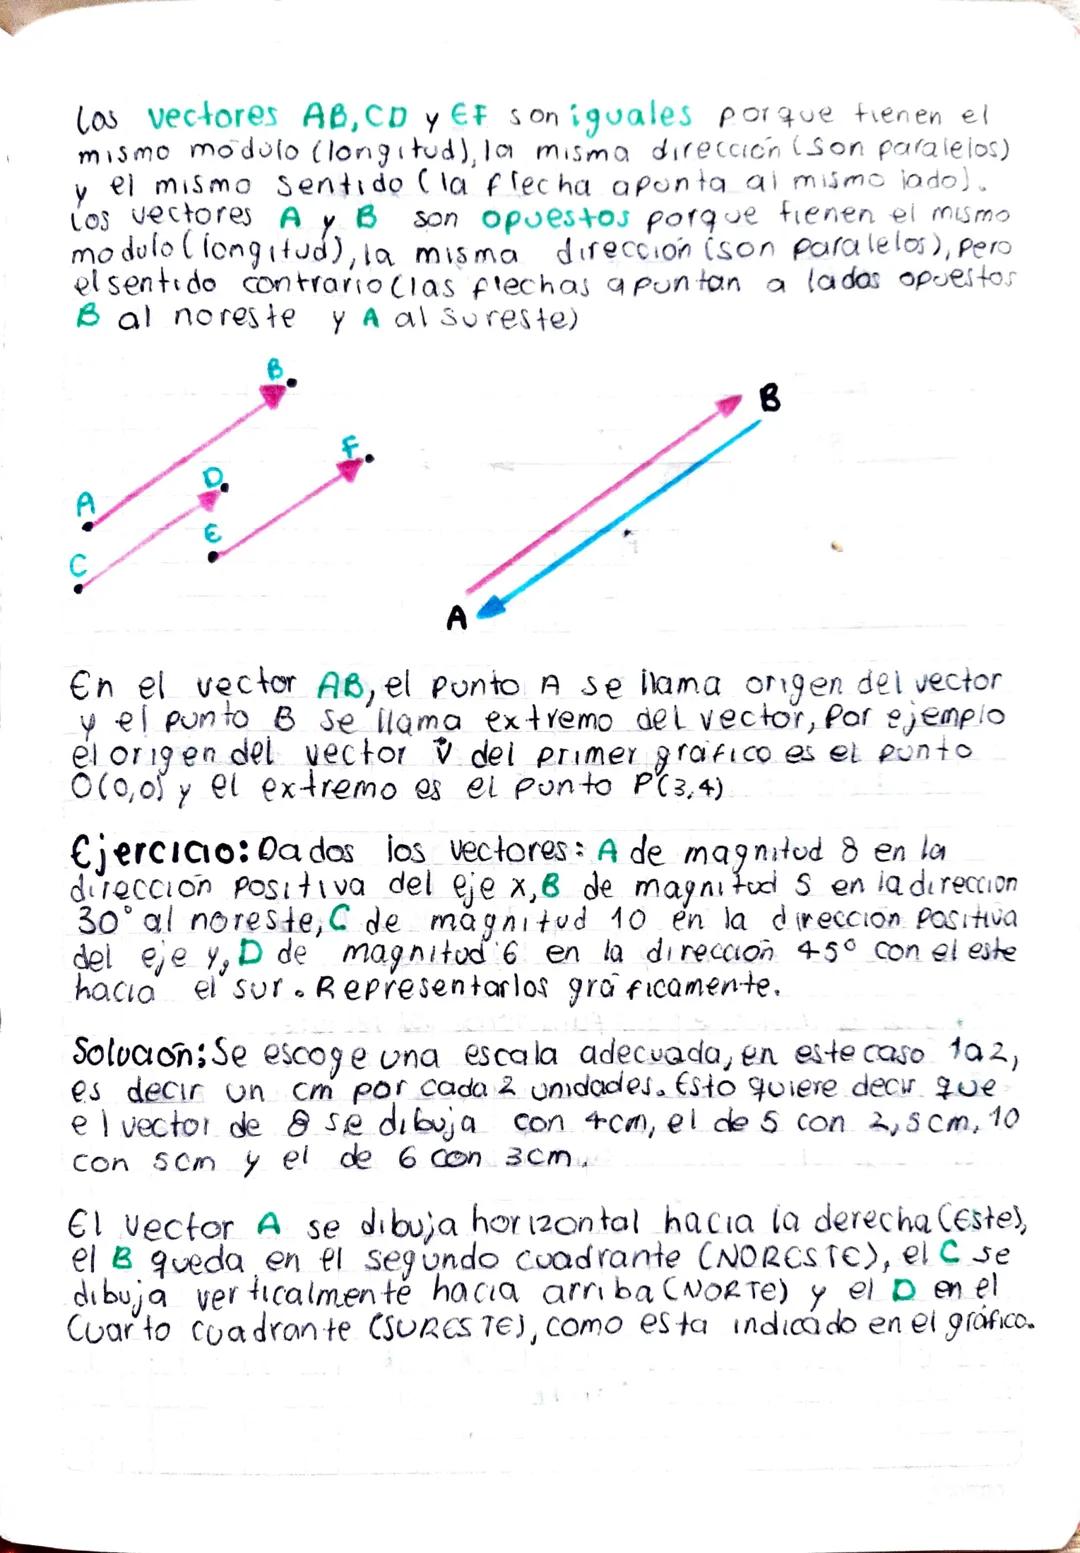 Los vectores AB, CD y EF son iguales porque tienen el
mismo modulo (longitud), la misma dirección (son paralelos)
y el mismo sentido (la flecha apunta al mismo lado).
Los vectores A y B son opuestos porque tienen el mismo
modulo (longitud), la misma dirección (son paralelos), pero
el sentido contrario (las flechas apuntan a lados opuestos
B al noreste y A al sureste)
B
F
D
A
E
C
B
A
En el vector AB, el punto A se llama origen del vector
y el punto B se llama extremo del vector, Por ejemplo
el origen del vector v̄ del primer gráfico es el punto
O(0,0) y el extremo es el punto P(3,4)
Ejercicio: Dados los vectores: A de magnitud 8 en la
dirección positiva del eje x, B de magnitud 5 en la direccion
30° al noreste, C de magnitud 10 en la dirección positiva
del eje y, D de magnitud 6 en la dirección 45° con el este
hacia el sur. Representarlos gráficamente.
Solución: Se escoge una escala adecuada, en este caso 1 a 2,
es decir un cm por cada 2 unidades. Esto quiere decir que
el vector de 8 se dibuja con 4cm, el de 5 con 2,5cm, 10
con 5cm y el de 6 con 3cm.
El vector A se dibuja horizontal hacia la derecha (Este),
el B queda en el segundo cuadrante (NORESTE), el C se
dibuja verticalmente hacia arriba (NORTE) y el D en el
Cuarto cuadrante (SURESTE), como esta indicado en el gráfico.